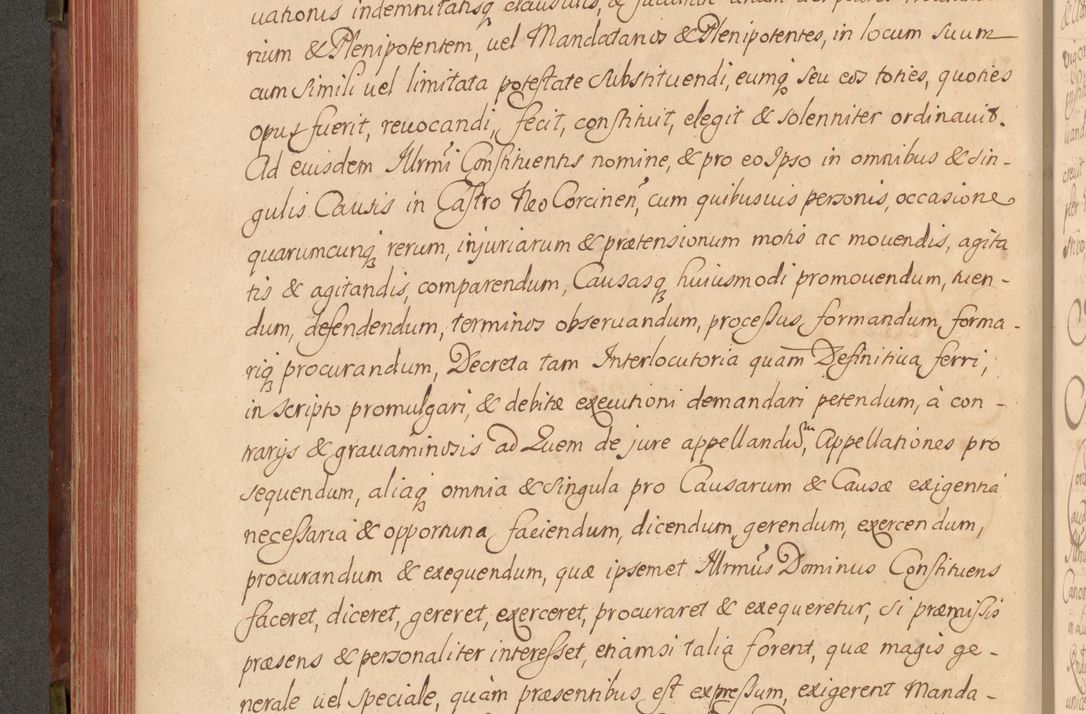 uationis indemnitatisq́ clausulis, &
rium & Plenipotentem, uel Mandatarios & Plenipotentes, in locum suum
cum simili uel limitata potestate substituendi, eumq́ seu eos toties, quoties
opus fuerit, reuocandi, fecit, constituit, elegit & solenniter ordinauit.
Ad euisdem Illrmi Constituentis nomine, & pro eo Ipso in omnibus & sin-
gulis Causis in Castro Neo Corcinen, cum quibusuis personis, occasione
quarumcunq́ rerum, injuriarum & prætensionum motis ac mouendis, agita
tis & agitandis, comparendum, Causasq́ huiusmodi promouendum, tuen-
dum, defendendum, terminos obseruandum, processus formandum forma-
riq́ procurandum, Decreta tam Interlocutoria quam Definitiua ferri,
in scripto promulgari, & debitæ executioni demandari petendum, à con-
trarijs & grauaminosis ad Quem de jure appellandum, Appellationes pro
sequendum, aliaq́ omnia & singula pro Causarum & Causæ exigentia
necessaria & opportuna faciendum, dicendum, gerendum, exercendum,
procurandum & exequendum, quæ ipsemet Illrmus Dominus Constituens
faceret, diceret, gereret, exerceret, procuraret & exequeretur, si præmissis
præsens & personaliter interesset, etiamsi talia forent, quæ magis ge-
nerale uel speciale, quàm præsentibus est expressum, exigerent Manda-